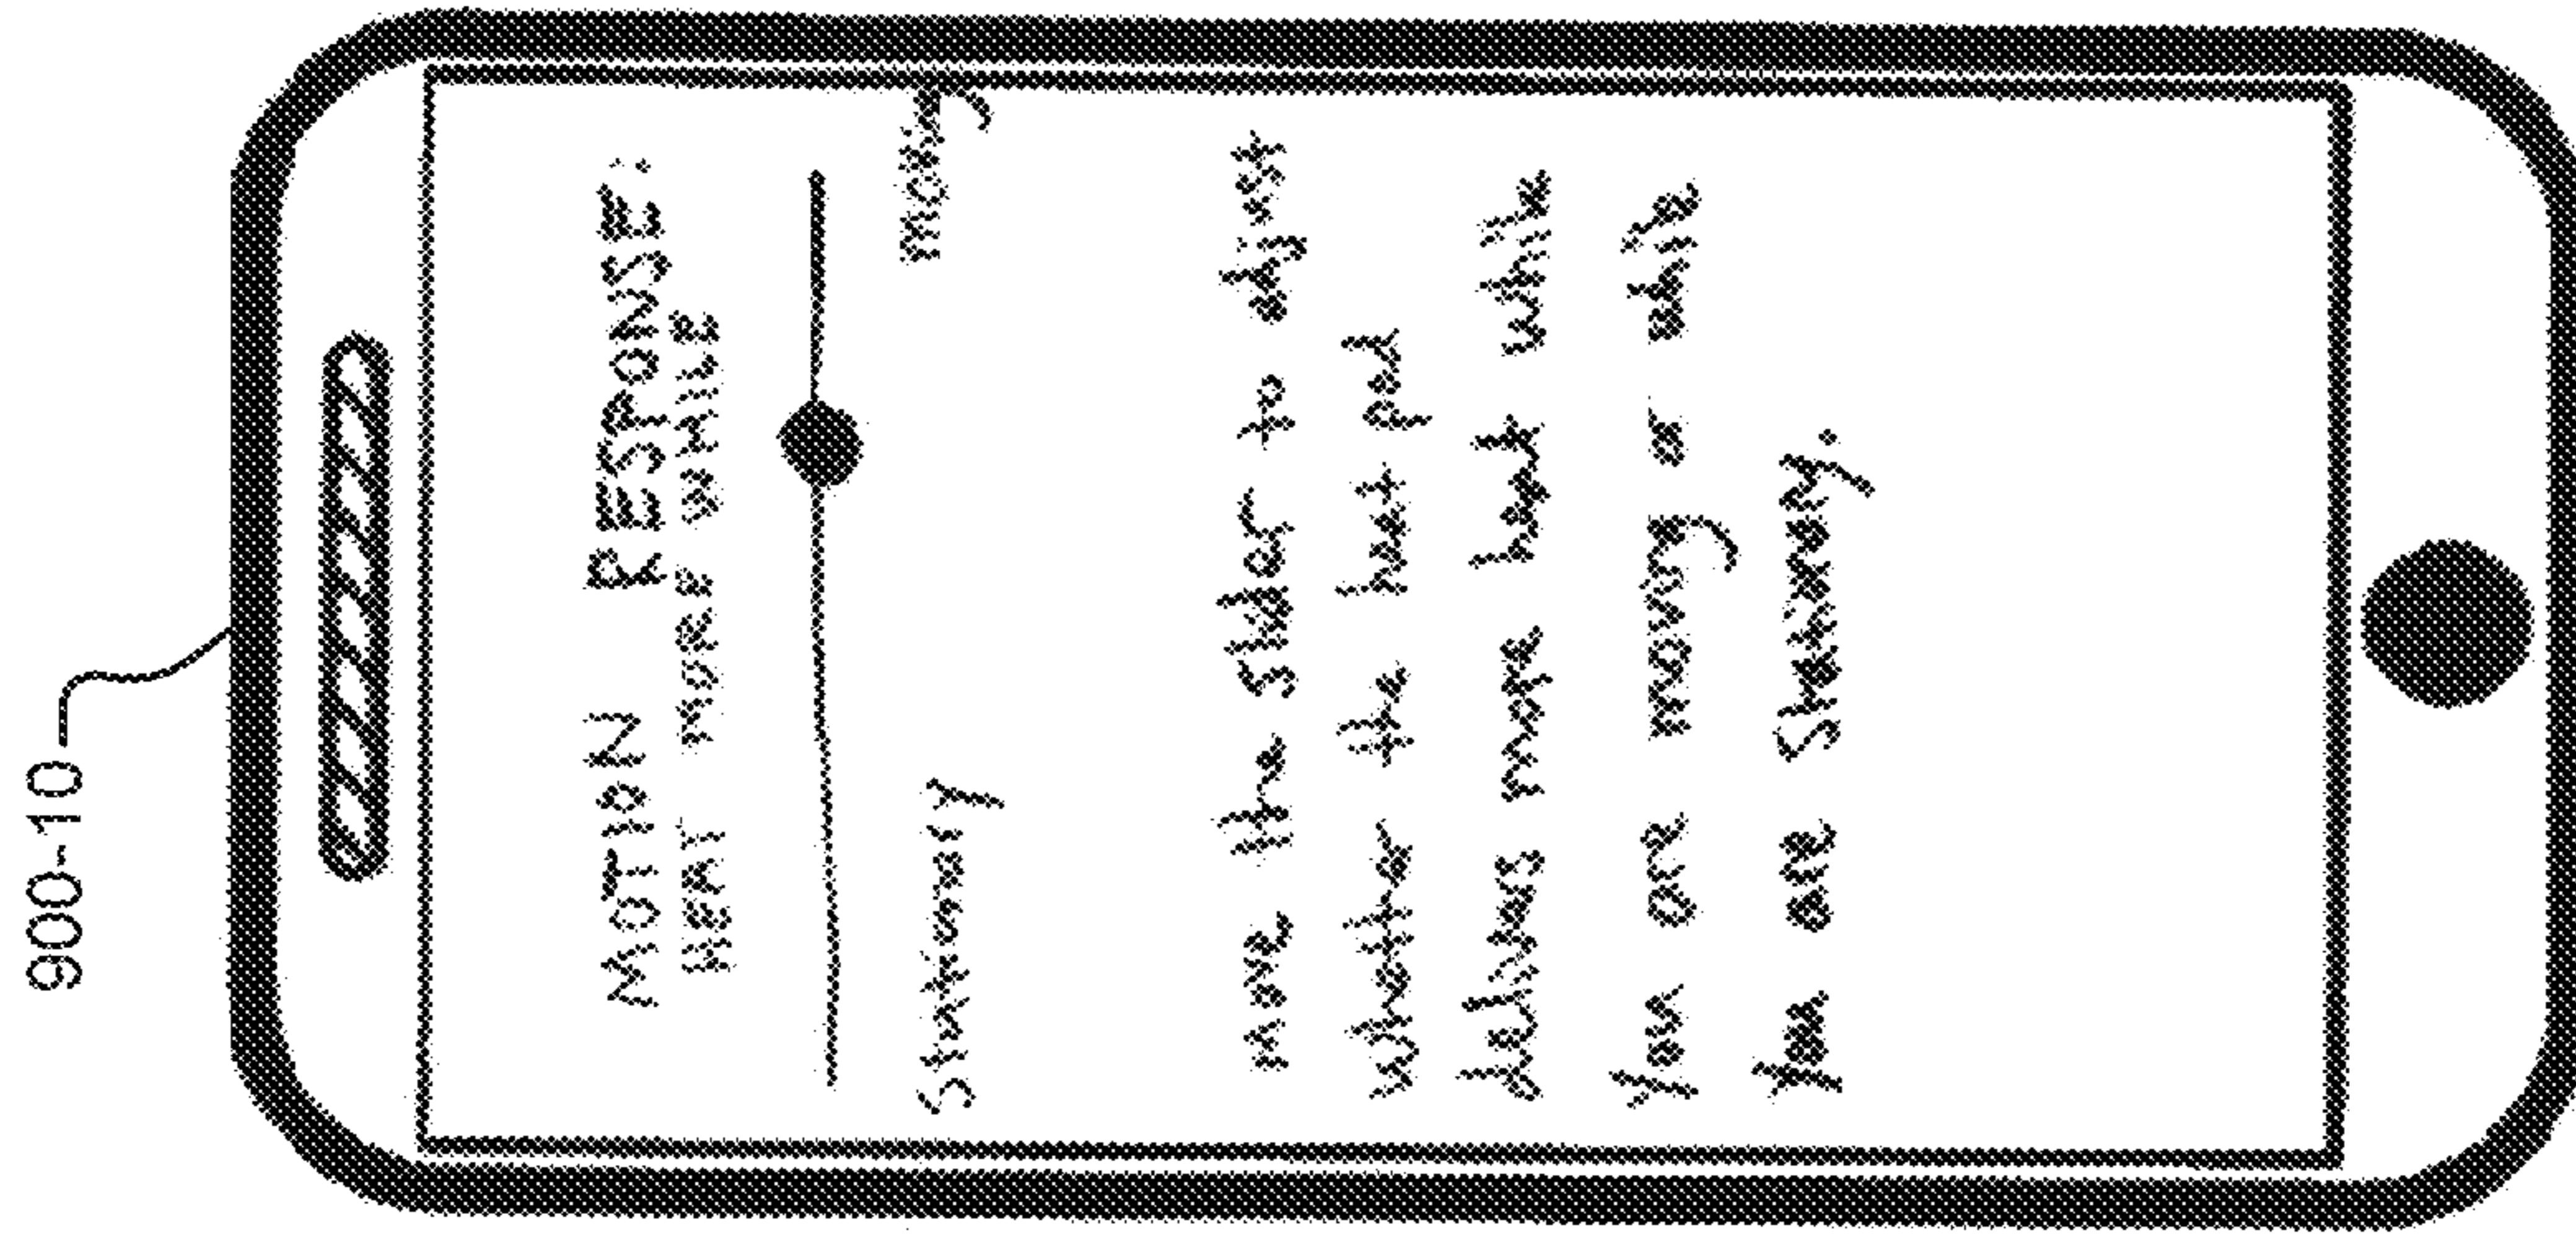 900-10
MOTION RESPONSE:
HEAT MORE WHILE
Stationary moving
move the Slider to adjust
Whether the heat pad
delivers more heat while
you are moving or while
you are Stationary.